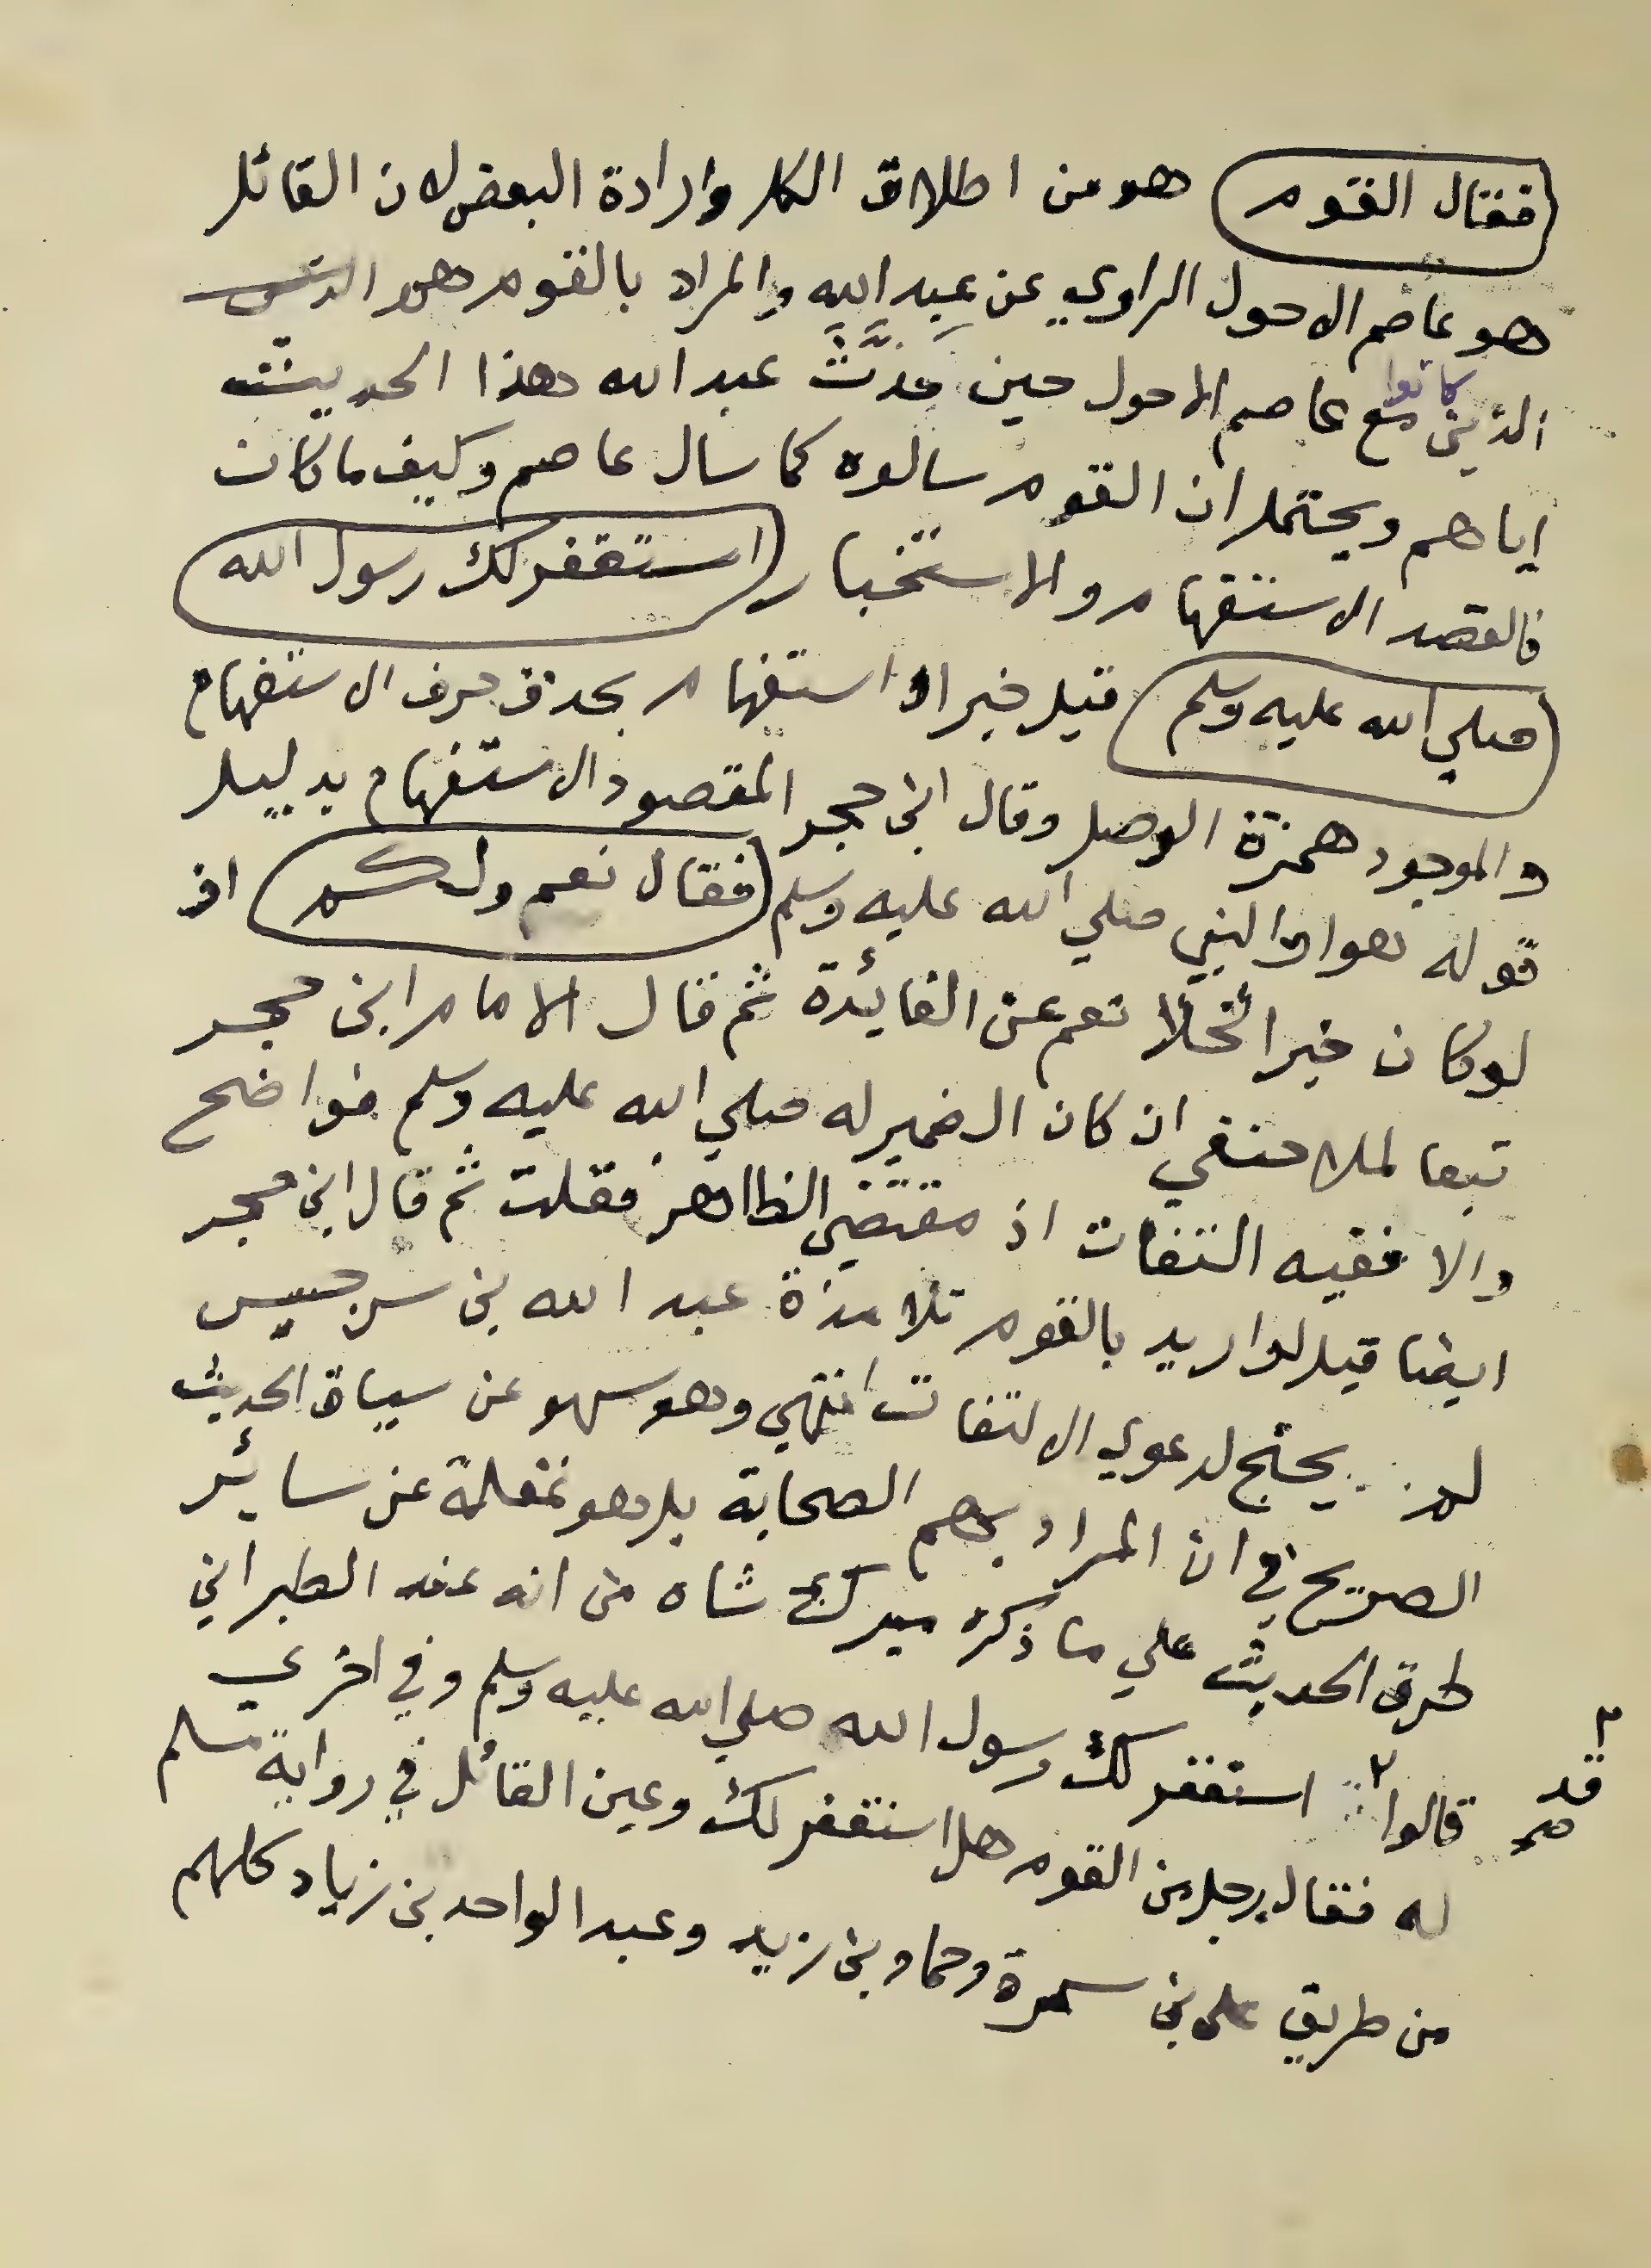 فقال القوم هو من اطلاق الكل وارادة البعض لان القائل
هو عاصم الاحول الراوي عن عبد الله والمراد بالقوم هو
الذين كانوا مع عاصم الاحول حين حدَّثَ عبد الله هذا الحديث
اياهم ويحتمل ان القوم سالوه كما سال عاصم وكيف ما كان
فالقصد الاستفهام والاستخبار استغفر لك رسول الله
صلي الله عليه وسلم قيل خبر او استفهام بحذف حرف الاستفهام
والموجود همزة الوصل وقال ابن حجر المقصود الاستفهام بدليل
قوله هو او النبي صلي الله عليه وسلم فقال نعم ولكم اذ
لو كان خبرا لخلا نعم عن الفائدة ثم قال الامام ابن حجر
تبعا لملا حنفي ان كان الضمير له صلي الله عليه وسلم فواضح
والا ففيه التفات اذ مقتضي الظاهر فقلت ثم قال ابن حجر
ايضا قيل لو اريد بالقوم تلامذة عبد الله بن سرجس
لم يحتج لدعوي الالتفات انتهي وهو سهو عن سياق الحديث
الصريح في ان المراد بهم الصحابة بل هو غفلة عن سائر
طرق الحديث علي ما ذكره ميرك شاه من انه عند الطبراني
قالوا ٢ استغفر لك رسول الله صلي الله عليه وسلم وفي اخري
٢ قد صح
له فقال رجل من القوم هل استغفر لك وعين القائل في رواية مسلم
من طريق علي بن سمرة وحماد بن زيد وعبد الواحد بن زياد كلهم